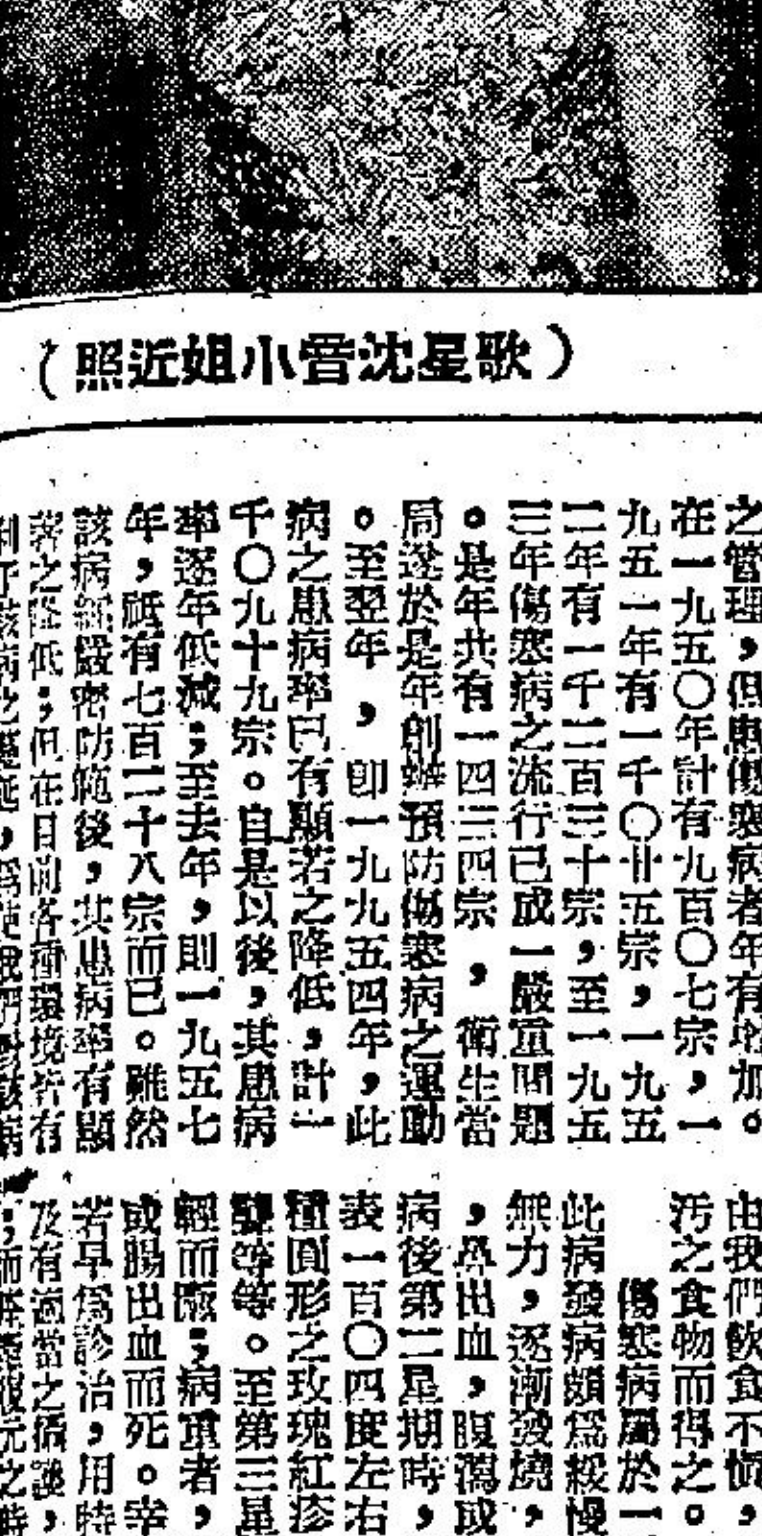 （歌星沈音小姐近照）
之管理，但患傷寒病者年有增加。
在一九五〇年計有九百〇七宗，一
九五一年有一千〇卅五宗，一九五
二年有一千二百三十宗，至一九五
三年傷寒病之流行已成一嚴重問題
。是年共有一四三四宗，衛生當
局遂於是年創辦預防傷寒病之運動
。至翌年，卽一九九五四年，此
病之患病率已有顯著之降低，計一
千〇九十九宗。自是以後，其患病
率逐年低減；至去年，則一九五七
年，祗有七百二十八宗而已。雖然
該病經嚴密防範後，其患病率有顯
著之降低；但在目前各種環境皆有
由我們飲食不慎，
污之食物而得之。
傷寒病屬於一
此病發病頗爲緩慢
無力，逐漸發燒，
，鼻出血，腹瀉或
病後第二星期時，
表一百〇四度左右
種圓形之玫瑰紅疹
等等。至第三星
輕而 ；病重者，
或腸出血而死。幸
若早爲診治，用特
及有適當之 護，